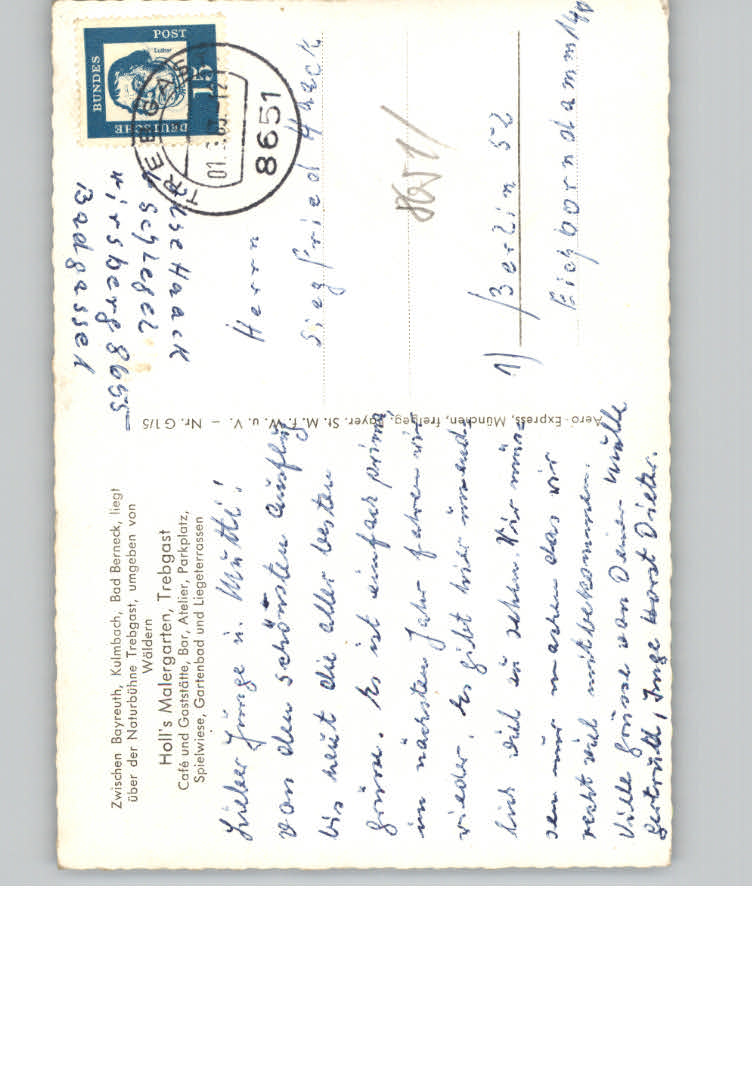 Zwischen Bayreuth, Kulmbach, Bad Berneck, liegt
über der Naturbühne Trebgast, umgeben von
Wäldern
Holl's Malergarten, Trebgast
Café und Gaststätte, Bar, Atelier, Parkplatz,
Spielwiese, Gartenbad und Liegeterrassen
Lieber Junge u. Mutti!
Von den schönsten Ausflug
bis heut die aller besten
Grüsse. Es ist einfach prima
im nächsten Jahr fahren wir
wieder. Es gibt hier
sich viel zu sehen. Wir müs-
sen nur machen das wir
recht viel mitbekommen.
Viele Grüsse von Deiner Mutti
Gertrud, Inge Horst Dieter.
Aero-Express, München, freigeg. Bayer. St. M. f. W. u. V. – Nr. G 1/5
Ilse Haack
Schlegel
Wirsberg 8655
Badgasse 1
DEUTSCHE BUNDES POST
Luther
15
TREBGAST
8651
Herrn
Siegfried Haack
8651/
1) 1 Berlin 52
Eichborndamm